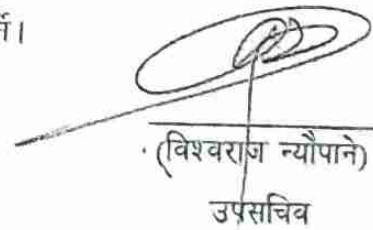 (विश्वराज न्यौपाने)
उपसचिव